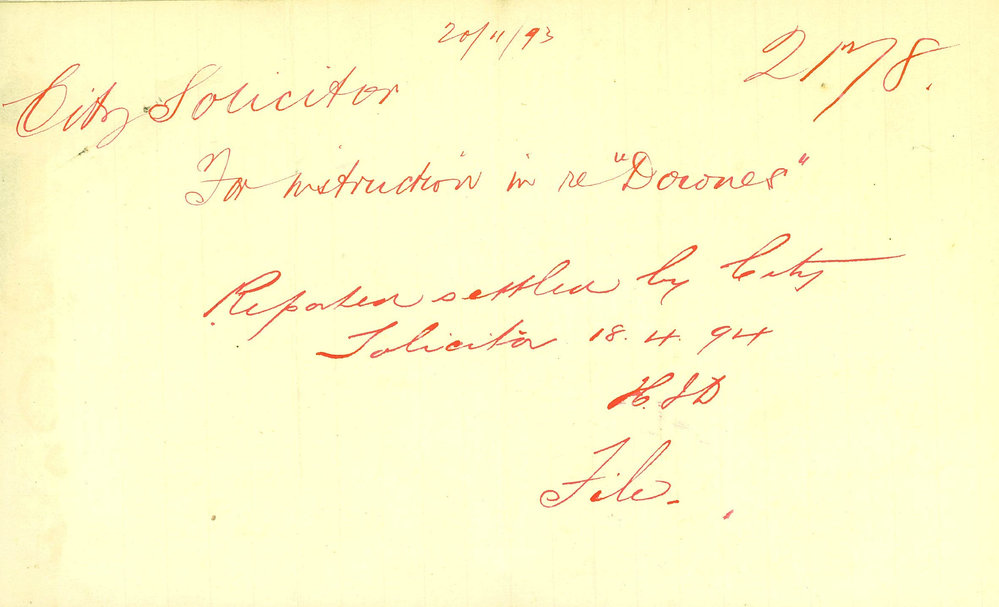 20/11/93
2178.
City Solicitor
For instruction in re "Downes"
Reported settled by City
Solicitor 18.4.94
H.J.D
File.